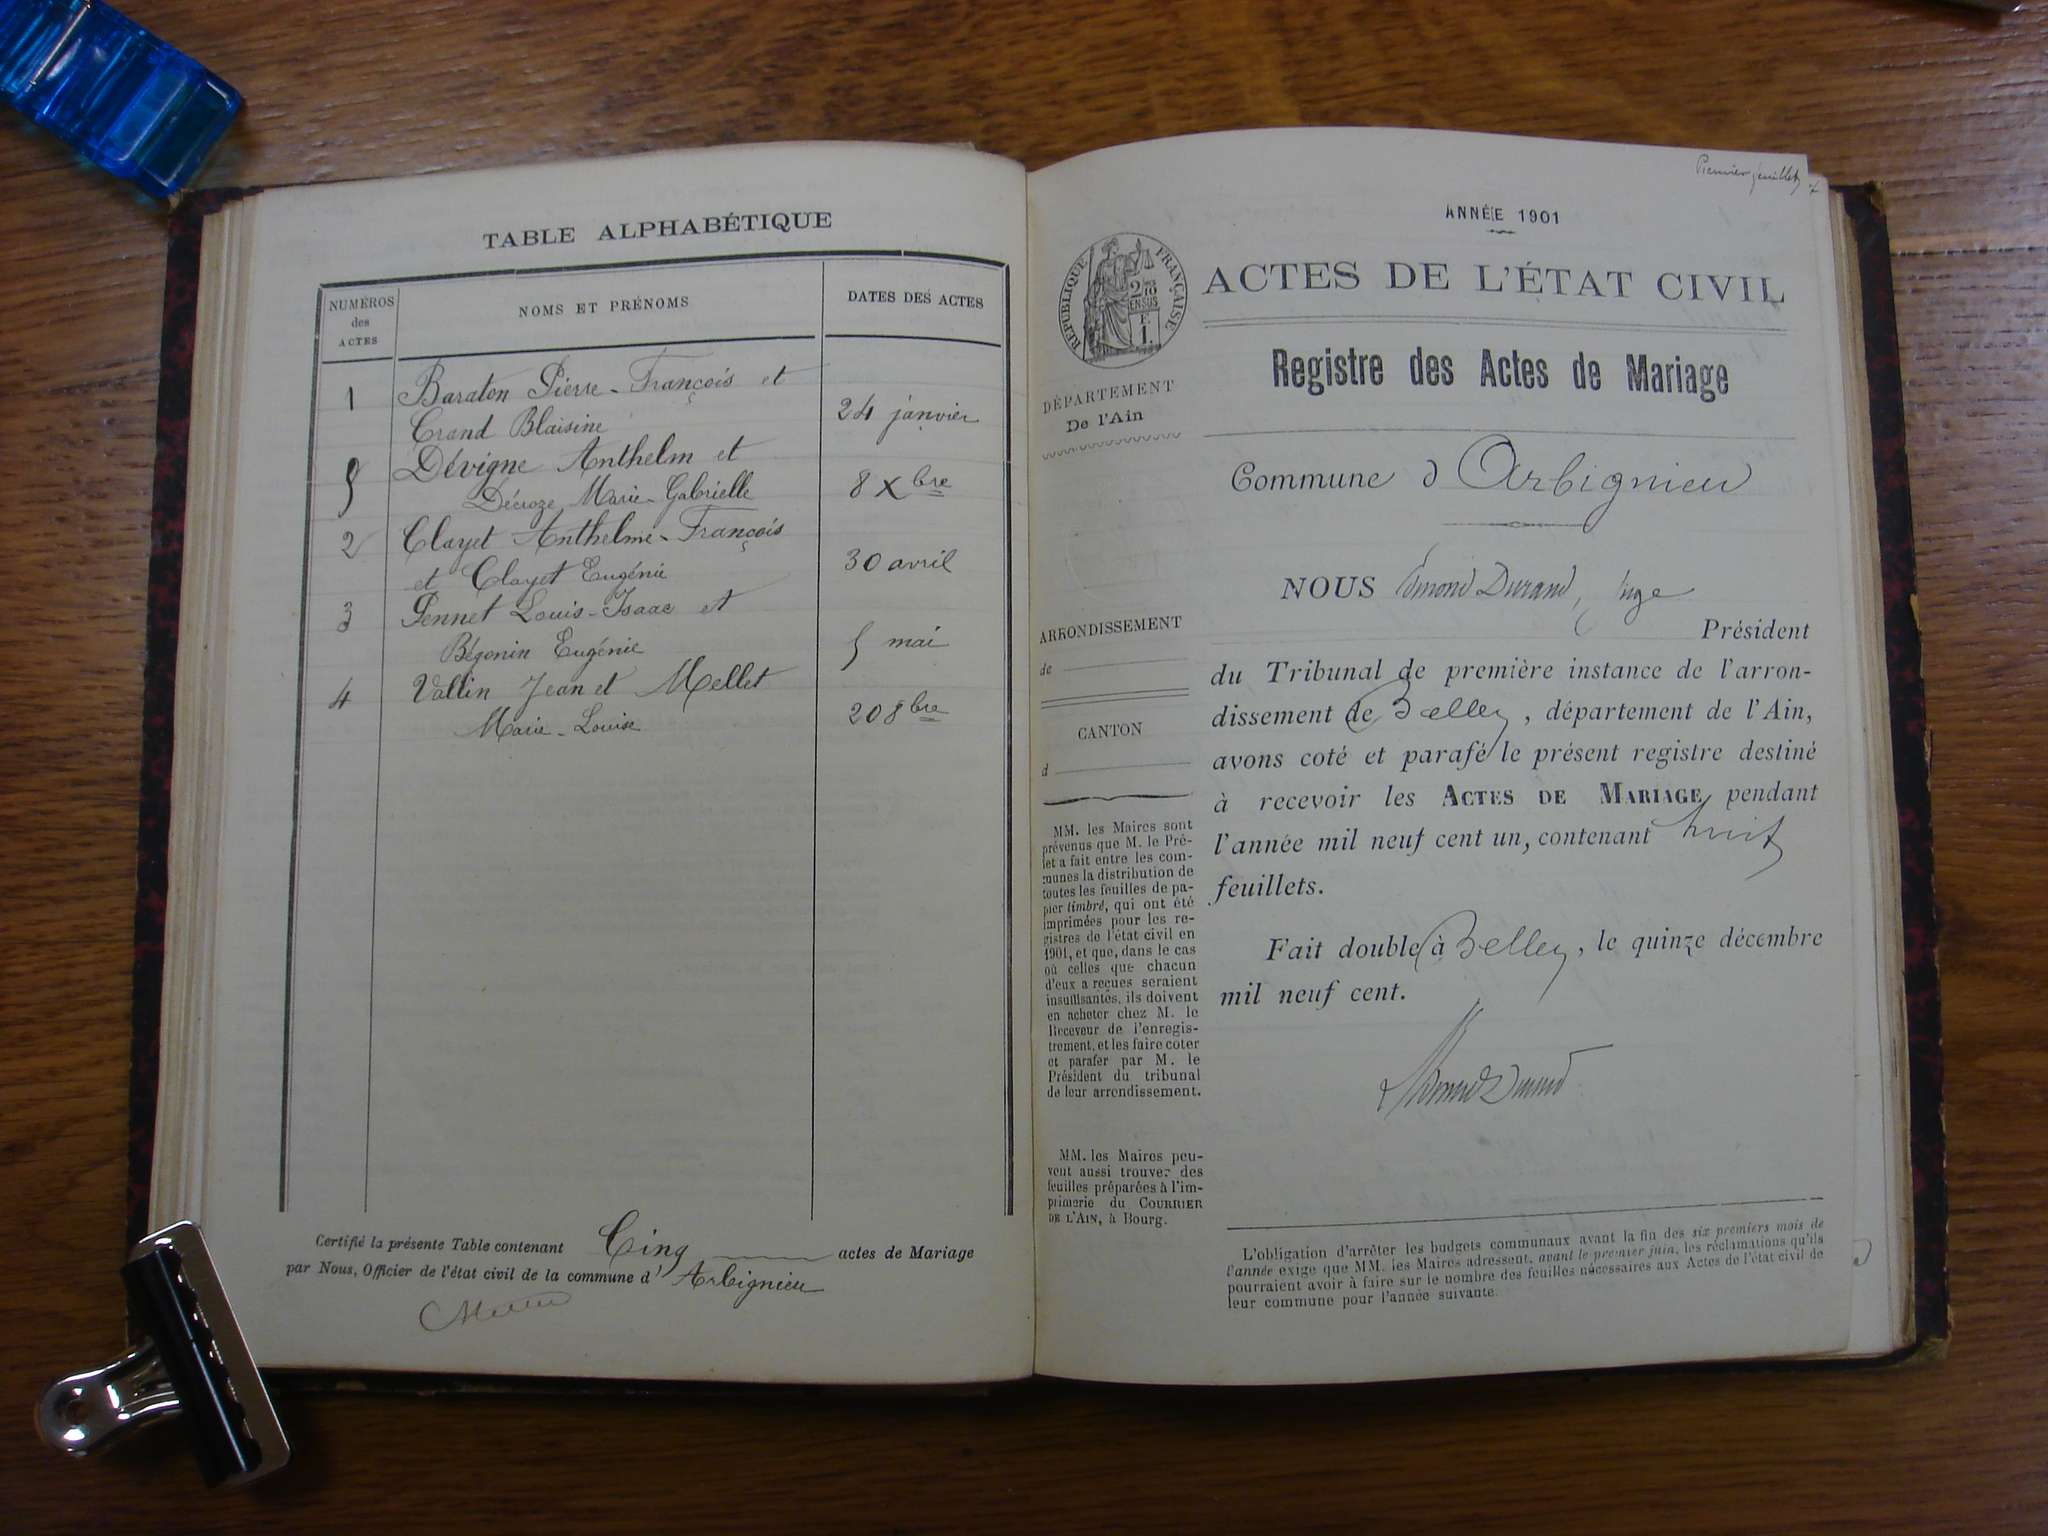 TABLE ALPHABÉTIQUE
NUMÉROS des ACTES
NOMS ET PRÉNOMS
DATES DES ACTES
1 Baraton Pierre-François et
Grand Blaisine 24 janvier
5 Dévigne Anthelm et
Décroze Marie-Gabrielle 8 Xbre
2 Clayet Anthelme-François
et Clayet Eugénie 30 avril
3 Pennet Louis-Isaac et
Bégonin Eugénie 5 mai
4 Vallin Jean et Mellet
Marie-Louise 20 8bre
Certifié la présente Table contenant Cinq actes de Mariage
par Nous, Officier de l'état civil de la commune d' Arbignieu
Premier feuillet
ANNÉE 1901
RÉPUBLIQUE FRANÇAISE
2/10 EN SUS
1 F.
ACTES DE L'ÉTAT CIVIL
Registre des Actes de Mariage
DÉPARTEMENT
De l'Ain
Commune d Arbignieu
NOUS Edmond Durand, juge
Président
du Tribunal de première instance de l'arron-
dissement de Belley, département de l'Ain,
avons coté et parafé le présent registre destiné
à recevoir les ACTES DE MARIAGE pendant
l'année mil neuf cent un, contenant huit
feuillets.
Fait double à Belley, le quinze décembre
mil neuf cent.
Edmond Durand
ARRONDISSEMENT
de
CANTON
d
MM. les Maires sont
prévenus que M. le Pré-
fet a fait entre les com-
munes la distribution de
toutes les feuilles de pa-
pier timbré, qui ont été
imprimées pour les re-
gistres de l'état civil en
1901, et que, dans le cas
où celles que chacun
d'eux a reçues seraient
insuffisantes, ils doivent
en acheter chez M. le
Receveur de l'enregis-
trement, et les faire coter
et parafer par M. le
Président du tribunal
de leur arrondissement.
MM. les Maires peu-
vent aussi trouver des
feuilles préparées à l'im-
primerie du COURRIER
DE L'AIN, à Bourg.
L'obligation d'arrêter les budgets communaux avant la fin des six premiers mois de
l'année exige que MM. les Maires adressent, avant le premier juin, les réclamations qu'ils
pourraient avoir à faire sur le nombre des feuilles nécessaires aux Actes de l'état civil de
leur commune pour l'année suivante.